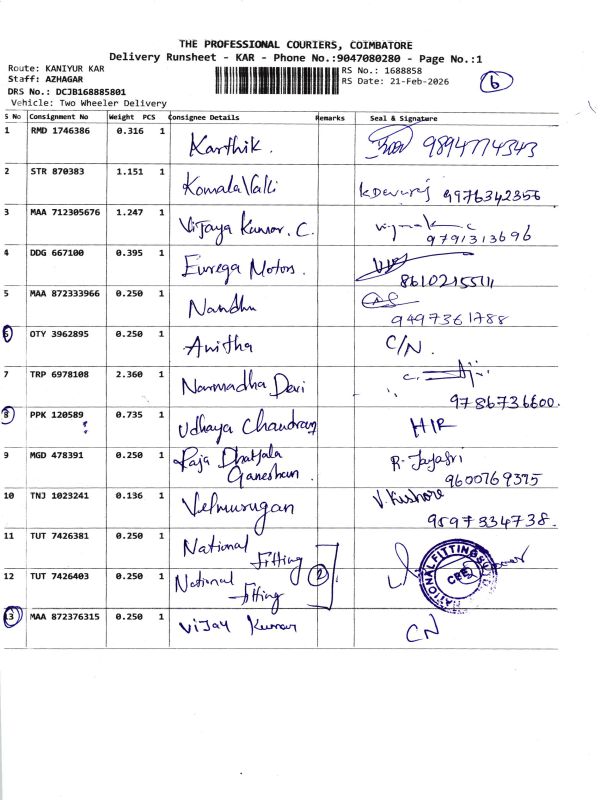 THE PROFESSIONAL COURIERS, COIMBATORE
Delivery Runsheet - KAR - Phone No.:9047080280 - Page No.:1
Route: KANIYUR KAR
Staff: AZHAGAR
DRS No.: DCJB168885801
Vehicle: Two Wheeler Delivery
RS No.: 1688858
RS Date: 21-Feb-2026
6
S No Consignment No Weight PCS Consignee Details Remarks Seal & Signature
1 RMD 1746386 0.316 1 Karthik. 9894774343
2 STR 870383 1.151 1 KomalaValli K Devaraj 9976342356
3 MAA 712305676 1.247 1 Vijaya Kumar. C. 9791313696
4 DDG 667100 0.395 1 Eurega Motors. 8610215511
5 MAA 872333966 0.250 1 Nandhu 9497361788
6 OTY 3962895 0.250 1 Anitha C/N.
7 TRP 6978108 2.360 1 Narmadha Devi 9786736600.
8 PPK 120589 0.735 1 Udhaya Chandran H/R
9 MGD 478391 0.250 1 Raja Ganeshan. R. Jayasri 9600769375
10 TNJ 1023241 0.136 1 Velmurugan V. Kishore 9597334738.
11 TUT 7426381 0.250 1 National Fitting
12 TUT 7426403 0.250 1 National Fitting 2
NATIONAL FITTING
CBE
13 MAA 872376315 0.250 1 Vijay Kumar CN